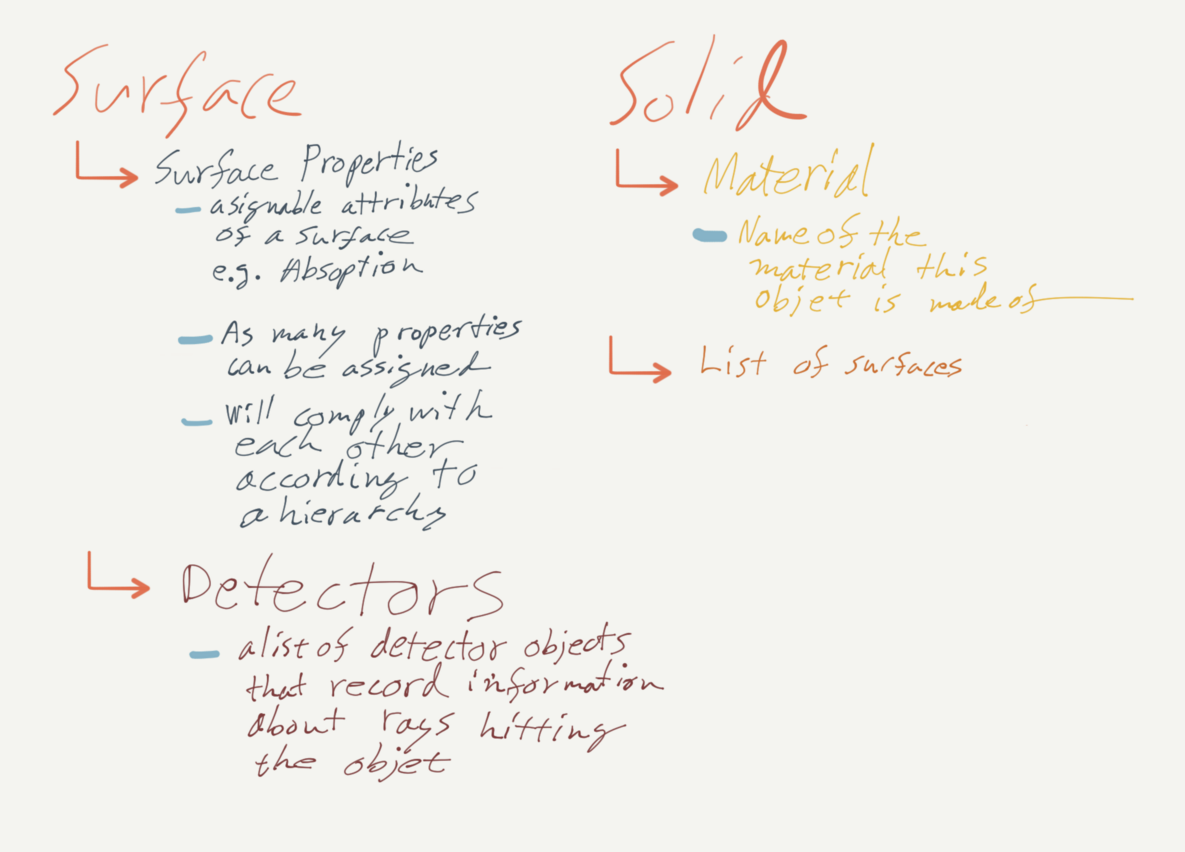 Surface
Surface Properties
- asignable attributes
of a surface
e.g. Absoption
- As many properties
can be assigned
- Will comply with
each other
according to
a hierarchy
Detectors
- a list of detector objects
that record information
about rays hitting
the objet
Solid
Material
- Name of the
material this
objet is made of
List of surfaces